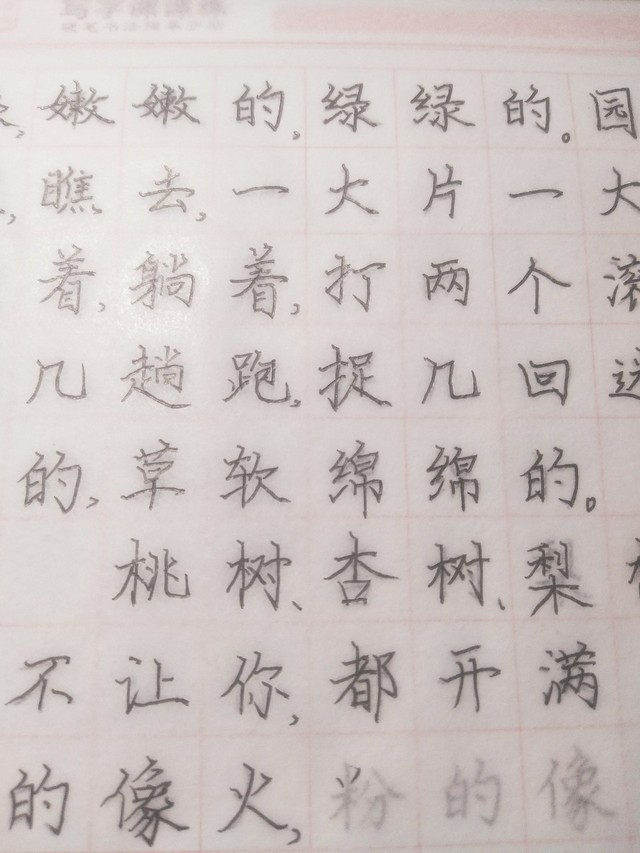 写字课课练
嫩嫩的,绿绿的。园
,瞧去,一大片一大
着,躺着,打两个滚
几趟跑,捉几回迷
的,草软绵绵的。
桃树、杏树、梨
不让你,都开满
的像火,粉的像